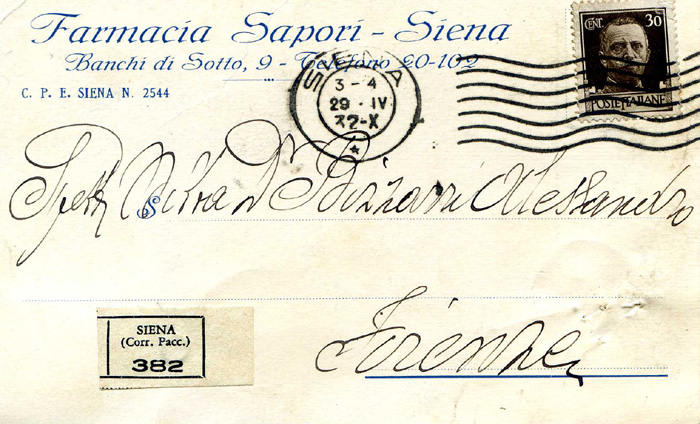 Farmacia Sapori - Siena
Banchi di Sotto, 9 - Telefono 20-102
C. P. E. SIENA N. 2544
SIENA
3-4
29 · IV
32-X
CENT. 30
POSTE ITALIANE
Spett Ditta Dr Bizzarri Alessandro
S
Firenze
SIENA
(Corr. Pacc.)
382